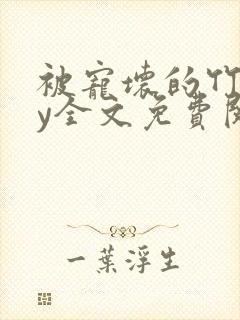 被寵壞的竹
y全文免費閱
一葉浮生